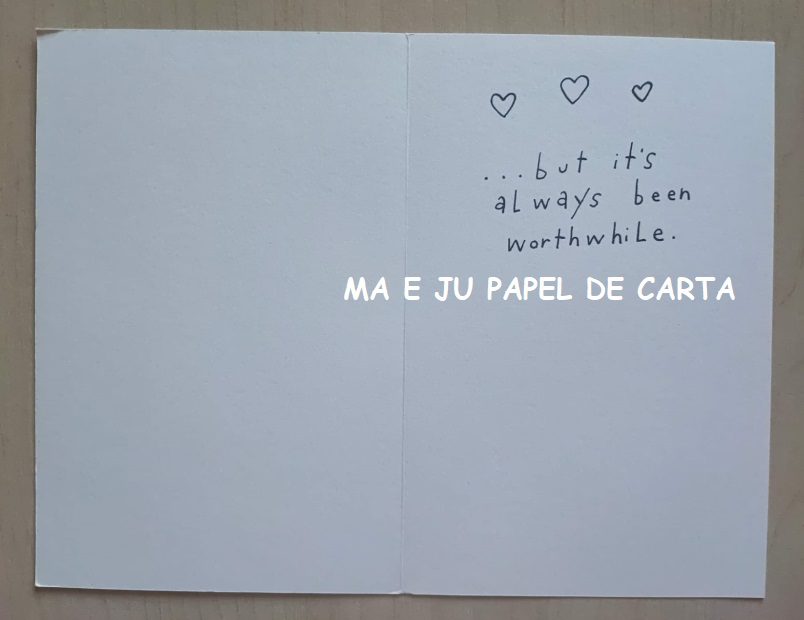 ...but it's
always been
worthwhile.
MA E JU PAPEL DE CARTA